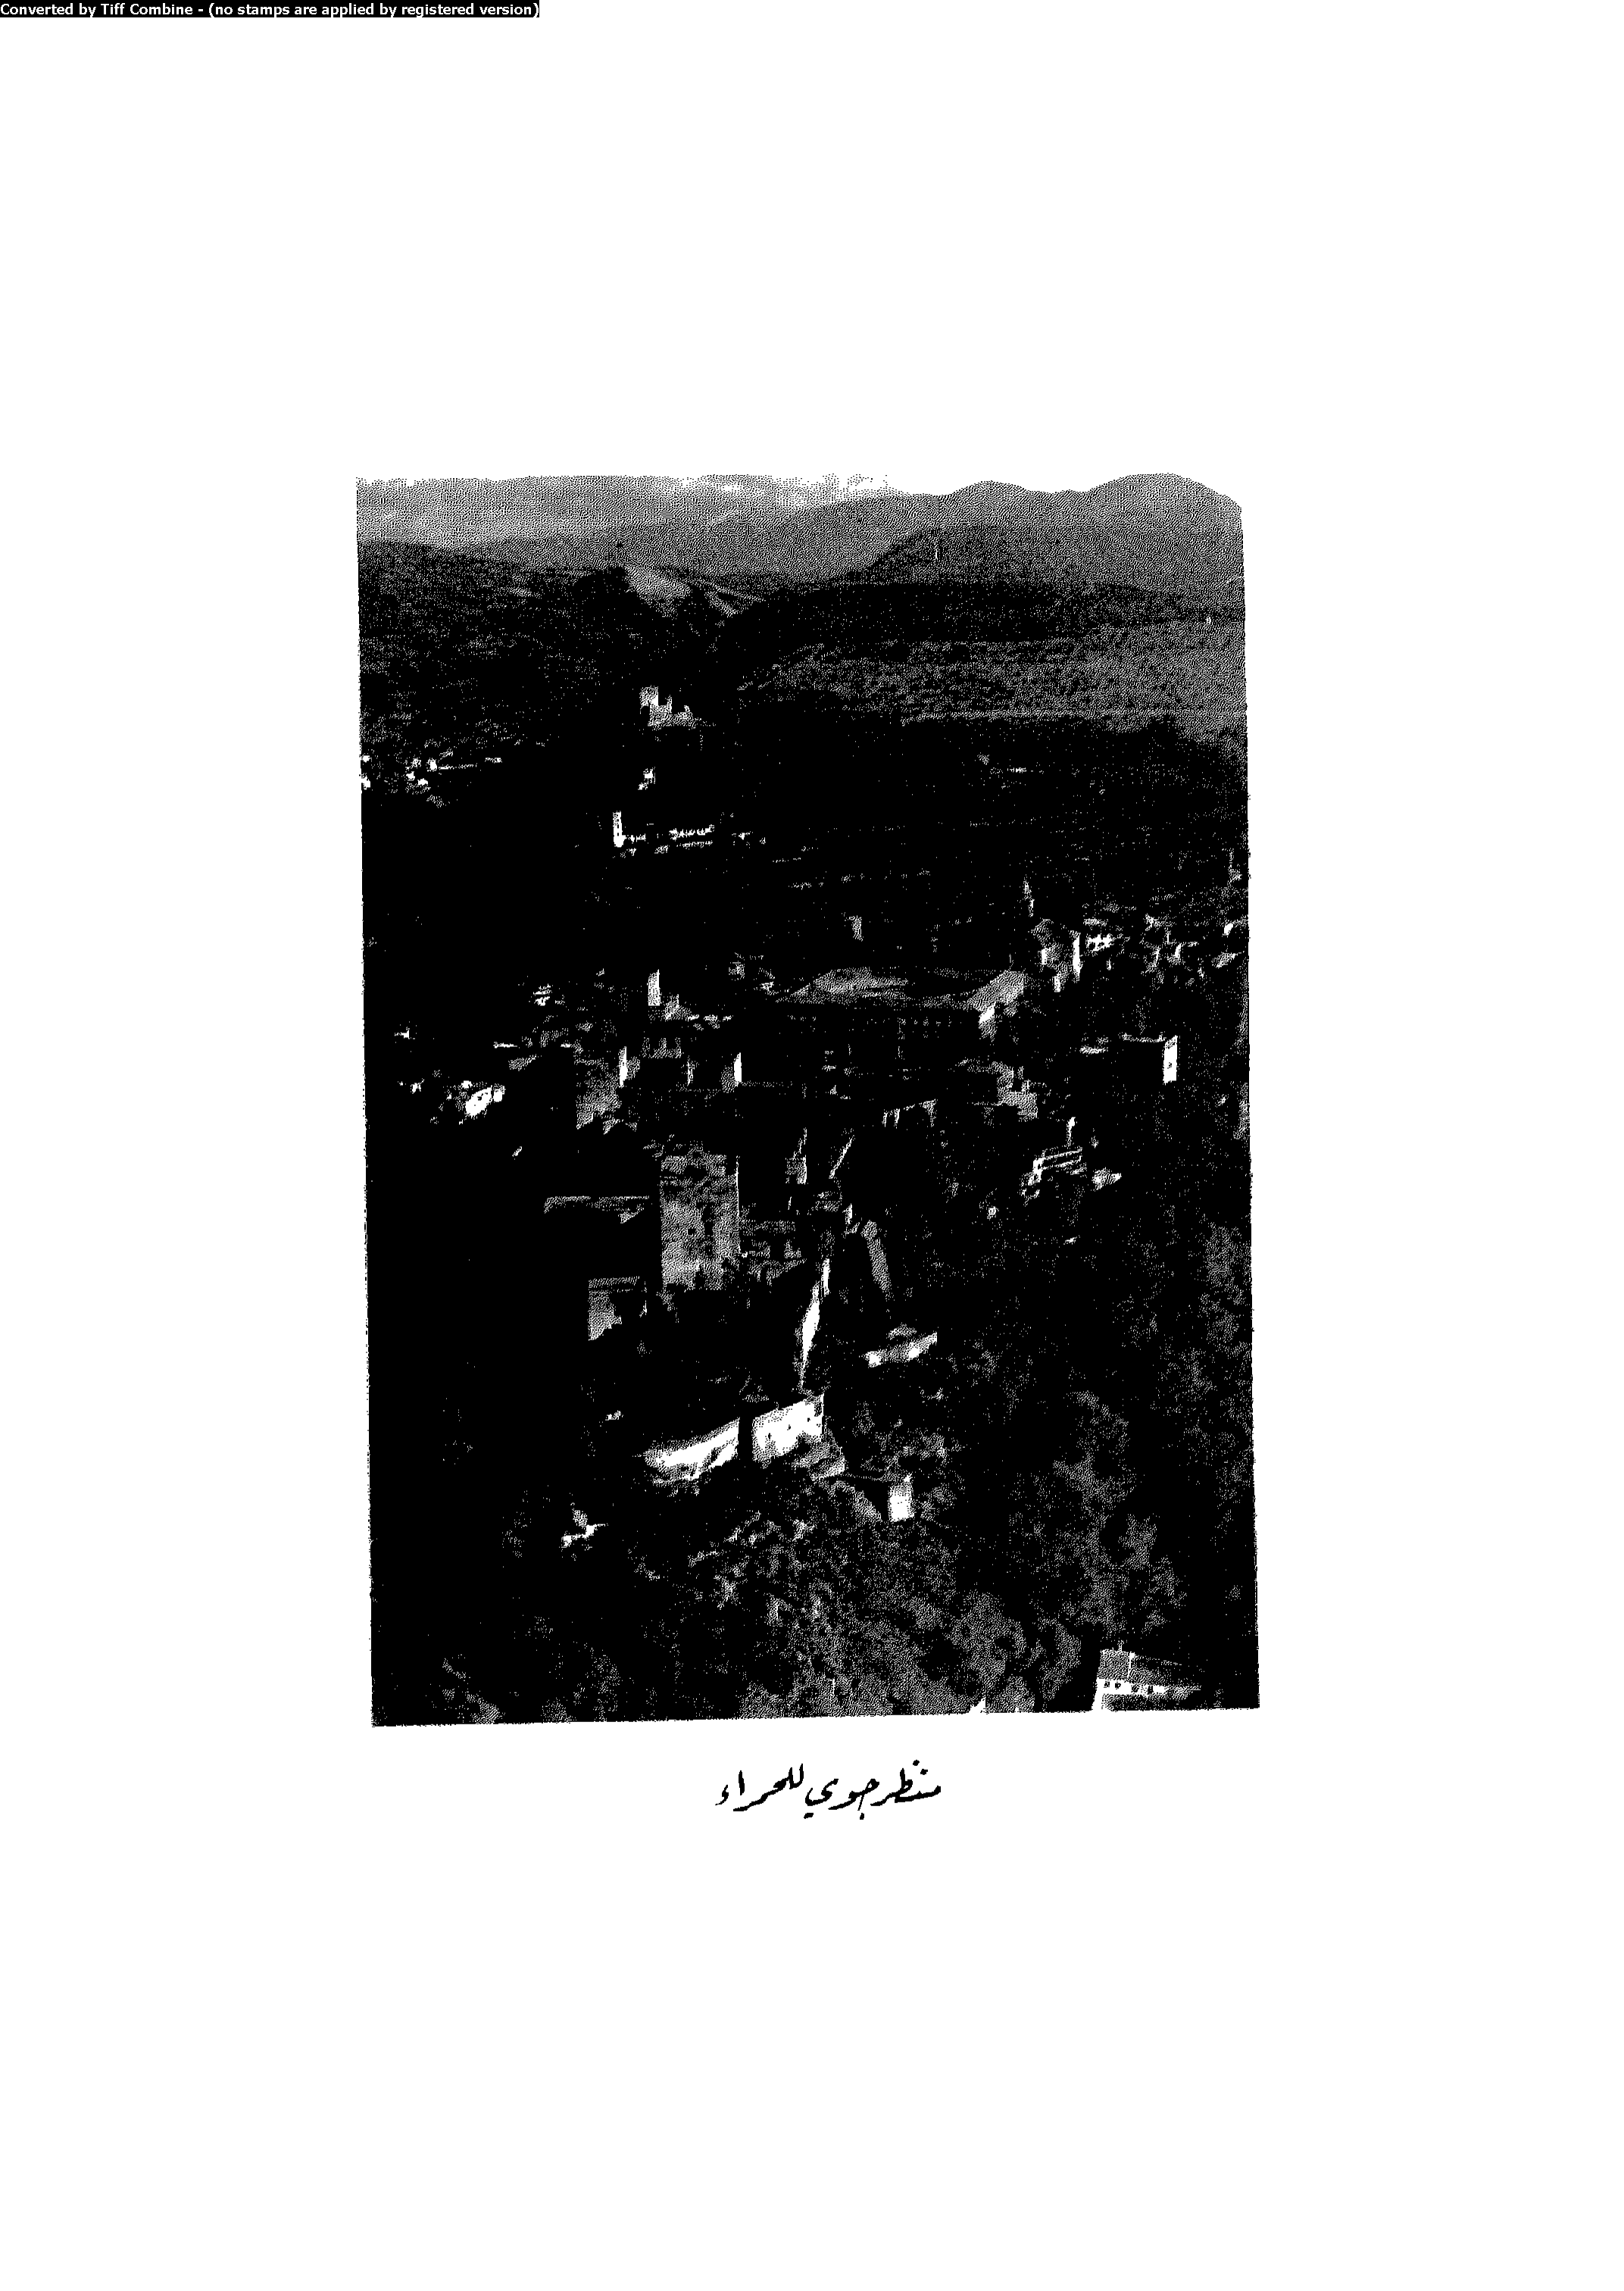 Converted by Tiff Combine - (no stamps are applied by registered version)
منظر جوي للحمراء